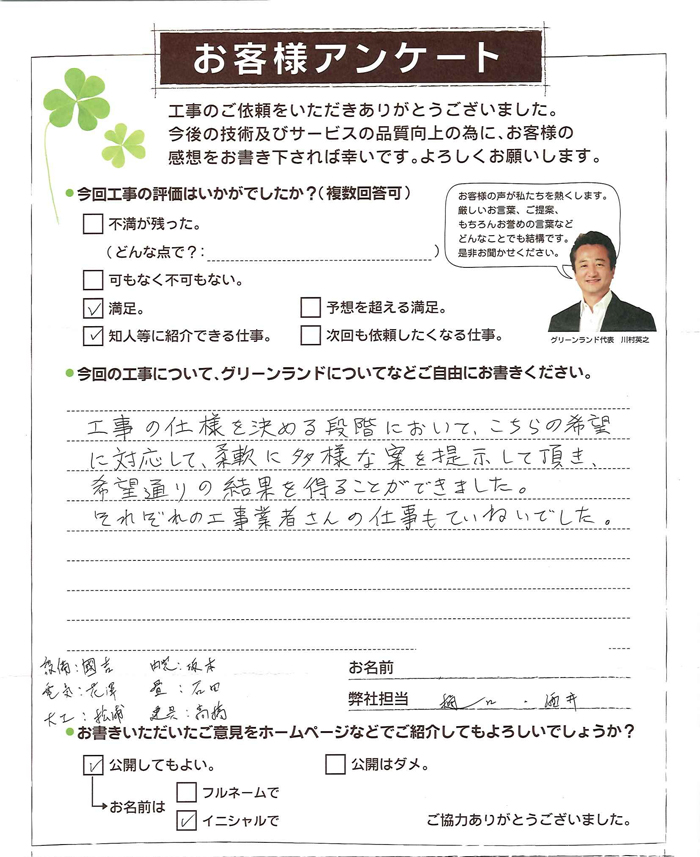 お客様アンケート
工事のご依頼をいただきありがとうございました。
今後の技術及びサービスの品質向上の為に、お客様の
感想をお書き下されば幸いです。よろしくお願いします。
今回工事の評価はいかがでしたか？（複数回答可）
不満が残った。
（どんな点で？：　）
可もなく不可もない。
満足。
予想を超える満足。
知人等に紹介できる仕事。
次回も依頼したくなる仕事。
お客様の声が私たちを熱くします。
厳しいお言葉、ご提案、
もちろんお誉めの言葉など
どんなことでも結構です。
是非お聞かせください。
グリーンランド代表　川村英之
今回の工事について、グリーンランドについてなどご自由にお書きください。
工事の仕様を決める段階において、こちらの希望
に対応して、柔軟に多様な案を提示して頂き、
希望通りの結果を得ることができました。
それぞれの工事業者さんの仕事もていねいでした。
設備：國吉
電気：花澤　畳：石田
大工：松浦　建具：高橋
お名前
弊社担当　樋口・酒井
お書きいただいたご意見をホームページなどでご紹介してもよろしいでしょうか？
公開してもよい。
公開はダメ。
お名前は
フルネームで
イニシャルで
ご協力ありがとうございました。